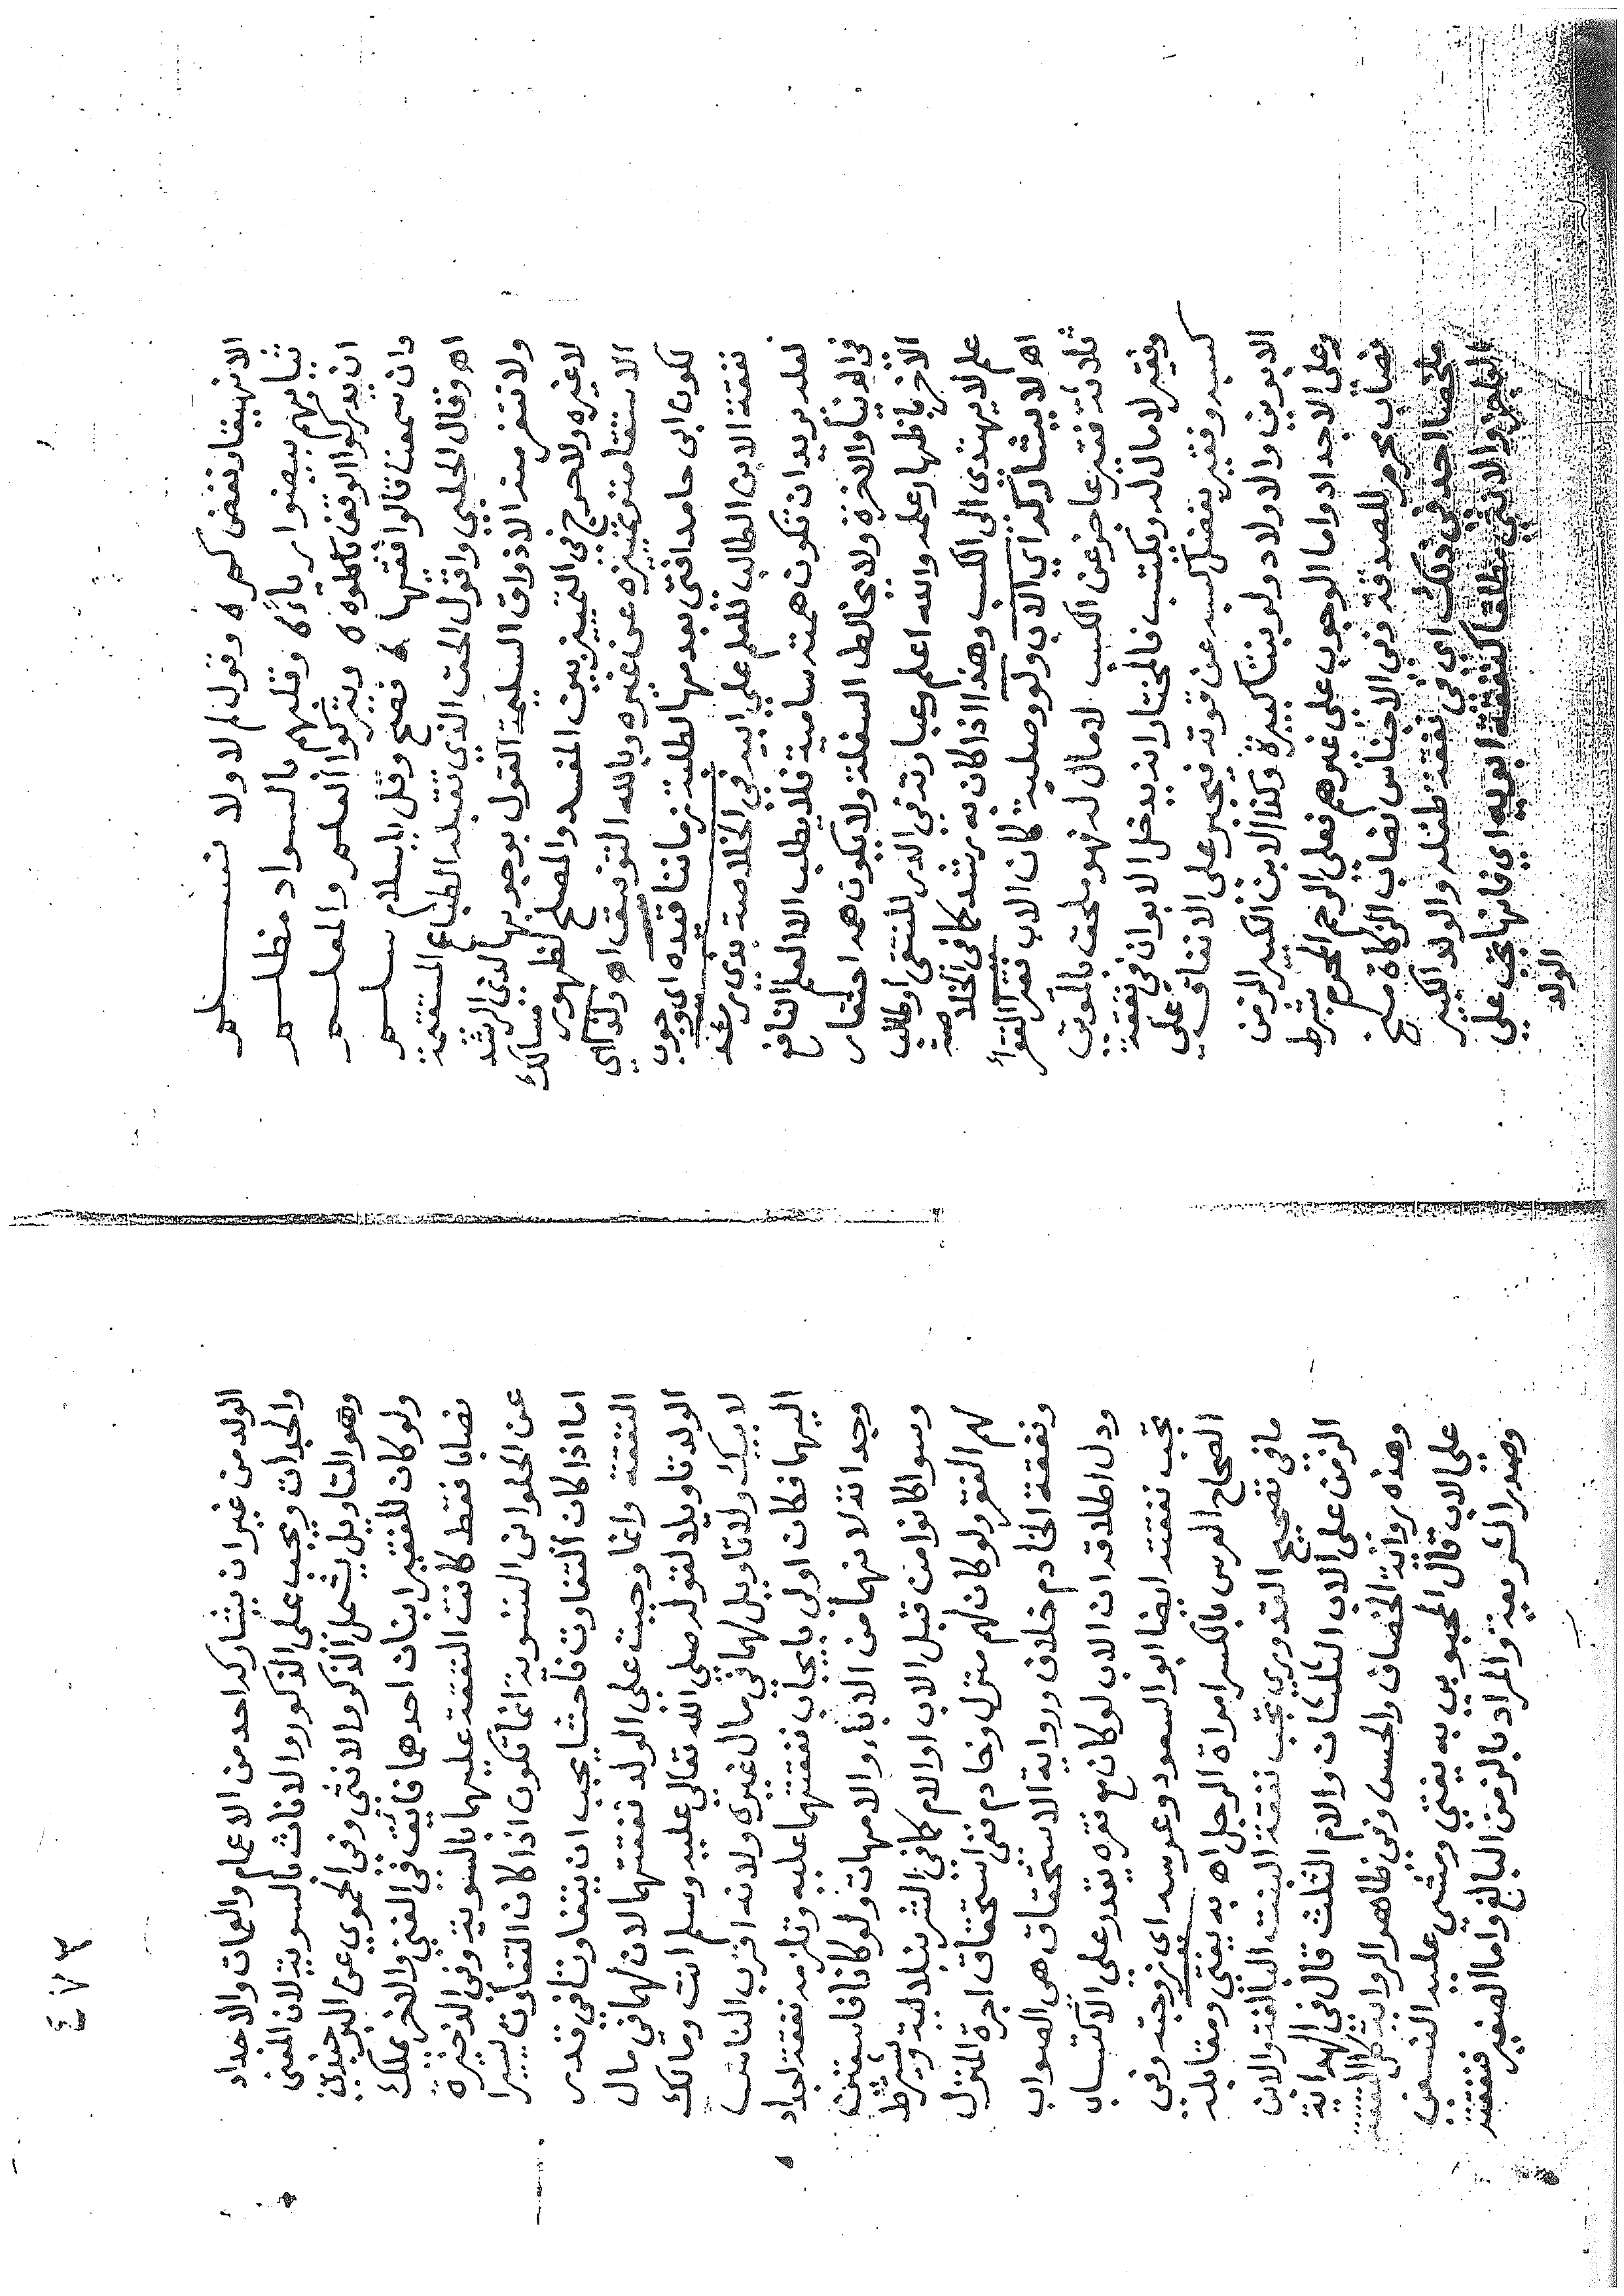 الانهيقا وتغض كبره وتول لم لا ولا نسلم
نتنا فهم بيضوا رياءه وقلبهم بالسواد مظلم
ان يدركوا الوقف ياكلوه ويتركوا العلم والمعلم
وان سمعنا قالوا فقيها ه فصح وقل يا سلام سلم
اه وقال الحلبي واقول الحق الذي تقبله الطباع المستقيمة
ولا تنفر منه الاذواق السليمة القول بوجوبها لذي الرشد
لا غيره ولا حرج في التمييز بين المفسد والمصلح لظهور مسالك
الاستقامة وتمييزه عن غيره وبالله التوفيق اه ولذا اي
لكون ابى حامد افتى بعدمها لطلبة زماننا قيده اي وجوب
نفقة الابن الطالب للعلم على ابيه في الخلاصة بذي رشد
لعله يريد ان تكون همته سامية فلا يطلب الا العلم النافع
في الدنيا والاخرة ولا يخالط السفلة ولا يكون همه احتقار
الاخر باظهار علمه والله اعلم وعبارته في الدر المنتقى او طالب
علم لا يهتدى الى الكسب وهذا اذا كان به رشد كما في الخلاصة
اه لا يشاركه اي الاب ولو وصلية كان الاب فقيرا الفقراء
ثلاثة فقير عاجز عن الكسب لا مال له فهو ملحق بالموتى
وفقير لا مال له ويكتسب فالمختار انه يدخل الابوان في نفقته
كسبه وفقير يفضل كسبه عن قوته فيجبر على الانفاق على
الابوين والاولاد ولو بنتا كبيرة وكذا الابن الكبير الزمن
وعلى الاجداد واما الوجوب على غيرهم فعلى الرحم المحرم بشرط
نصاب محرم للصدقة وفي الاجناس نصاب الزكاة منح
ملخصا احد في ذلك اي في نفقة طفله والولد الكبير
العاجز والانثى مطلقا كنفقة ابويه اي فانها تجب على
الولد
٤٧٣
الولد من غير ان يشاركه احد من الاعمام والعمات والاجداد
والجدات ويجب على الذكور والاناث بالسوية لان المعنى
وهو التاويل يشمل الذكر والانثى وفي الحموي عن البرجندي
ولو كان للفقير ابنان احدهما فايق في الغنى والاخر يملك
نصابا فقط كانت النفقة عليهما بالسوية وفي الذخيرة
عن الحلواني التسوية انما تكون اذا كان التفاوت يسيرا
اما اذا كان التفاوت فاحشا يجب ان يتفاوتا في قدر
النفقة وانما وجبت على الولد نفقتهما لان لهما في مال
الولد تاويلا لقوله صلى الله تعالى عليه وسلم انت ومالك
لابيك ولا تاويل لهما في مال غيره ولانه اقرب الناس
اليهما فكان اولى بايجاب نفقتهما عليه وتلزمه نفقة اجداد
وجداته لانهما من الاباء والامهات ولو كانا فاسقين
وسوا كانوا من قبل الاب او الام كما في الشرنبلالية ويشترط
لهم الفقر ولو كان لهم منزل وخادم نفى استحقاق اجرة المنزل
ونفقة الخادم خلاف ورواية الاستحقاق هي الصواب
ودل اطلاقه ان الاب لو كان مع فقره يقدر على الاكتساب
تجب نفقته ايضا ابو السعود وعرسه اي زوجته وفي
الصحاح العرس بالكسر امراة الرجل اه به يفتى ومقابله
ما في تصحيح القدوري تجب نفقة البنت البالغة والابن
الزمن على الاب الثلثان والام الثلث قال في الهداية
وهذه رواية الخصاف والحسن وفي ظاهر الرواية كل النفقة
على الاب قال المحبوبي به يفتى ومشى عليه النسفي
وصدر الشريعة والمراد بالزمن البالغ واما الصغير فنفقته